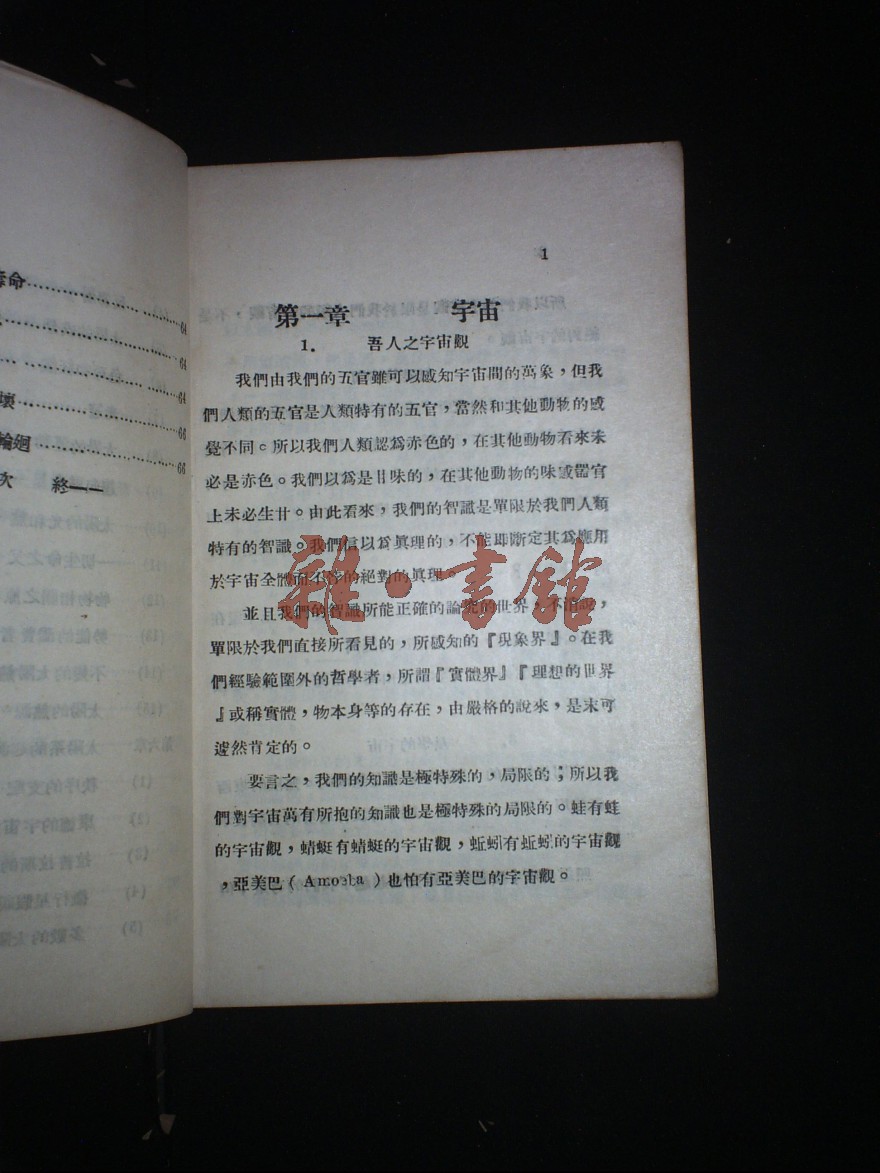 壽命……………………
64
………………………
64
………………………
64
壞……………………
66
輪迴…………………
66
次　終——
1
第一章　宇宙
1.　吾人之宇宙觀
我們由我們的五官雖可以感知宇宙間的萬象，但我
們人類的五官是人類特有的五官，當然和其他動物的感
覺不同。所以我們人類認爲赤色的，在其他動物看來未
必是赤色。我們以爲是甘味的，在其他動物的味感器官
上未必生甘。由此看來，我們的智識是單限於我們人類
特有的智識。我們信以爲眞理的，不能即斷定其爲應用
於宇宙全體而不悖的絕對的眞理。
並且我們的智識所能正確的論究的世界，不消說，
單限於我們直接所看見的，所感知的『現象界』。在我
們經驗範圍外的哲學者，所謂『實體界』『理想的世界
』或稱實體，物本身等的存在，由嚴格的說來，是未可
遽然肯定的。
要言之，我們的知識是極特殊的，局限的；所以我
們對宇宙萬有所抱的知識也是極特殊的局限的。蛙有蛙
的宇宙觀，蜻蜓有蜻蜓的宇宙觀，蚯蚓有蚯蚓的宇宙觀
，亞美巴（Amoeba）也怕有亞美巴的宇宙觀。
雜·書館